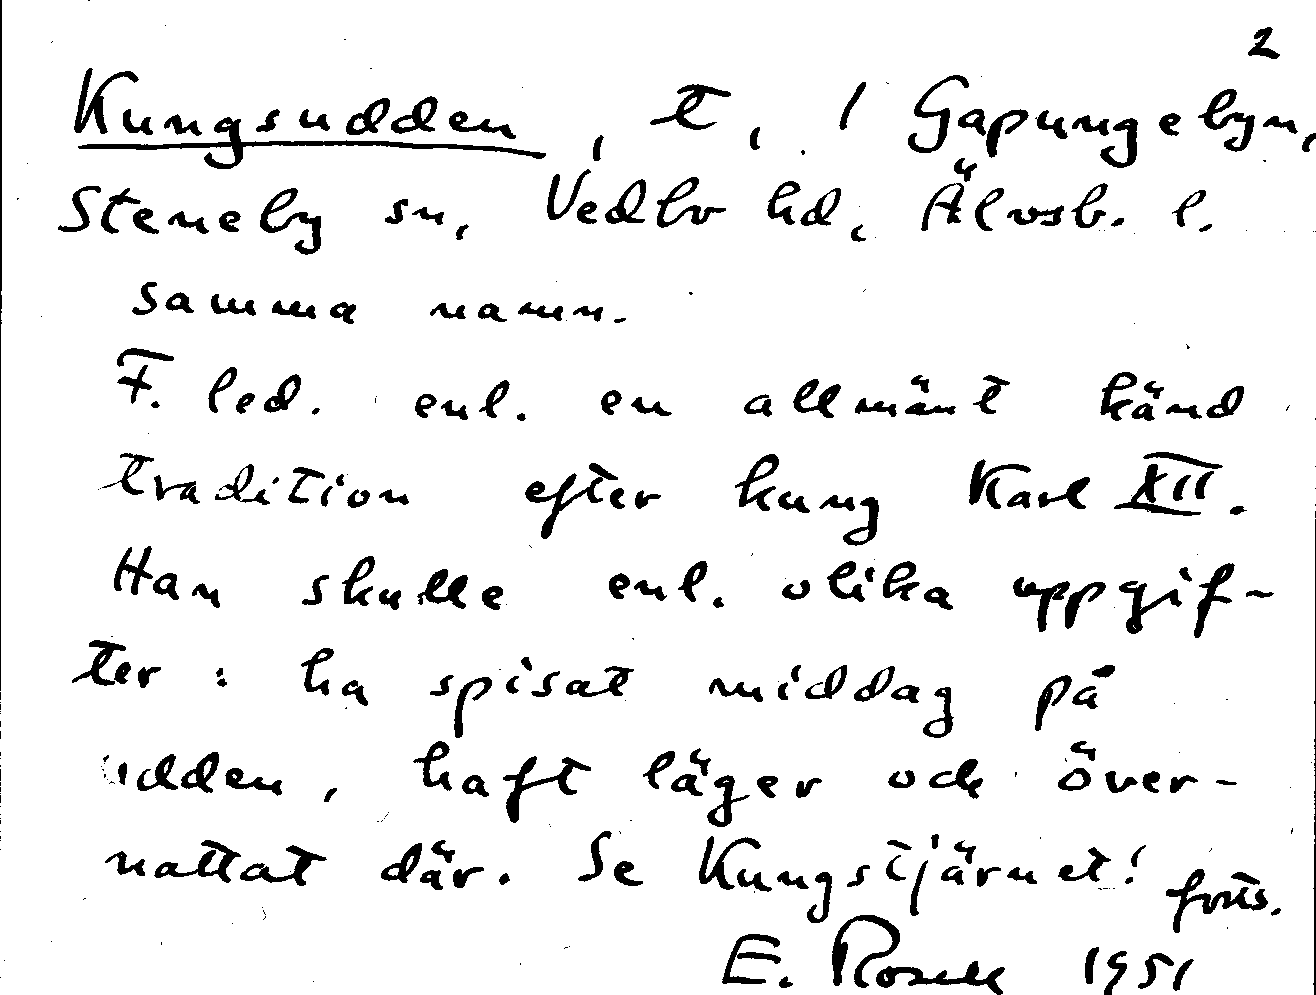 2
Kungsudden, t, 1 Gapungebyn,
Steneby sn, Vedbo hd, Älvsb. l.
samma namn.
F. led. enl. en allmänt känd
tradition efter kung Karl XII.
Han skulle enl. olika uppgif-
ter : ha spisat middag på
udden, haft läger och över-
nattat där. Se Kungstjärnet! forts.
E. Rosell 1951